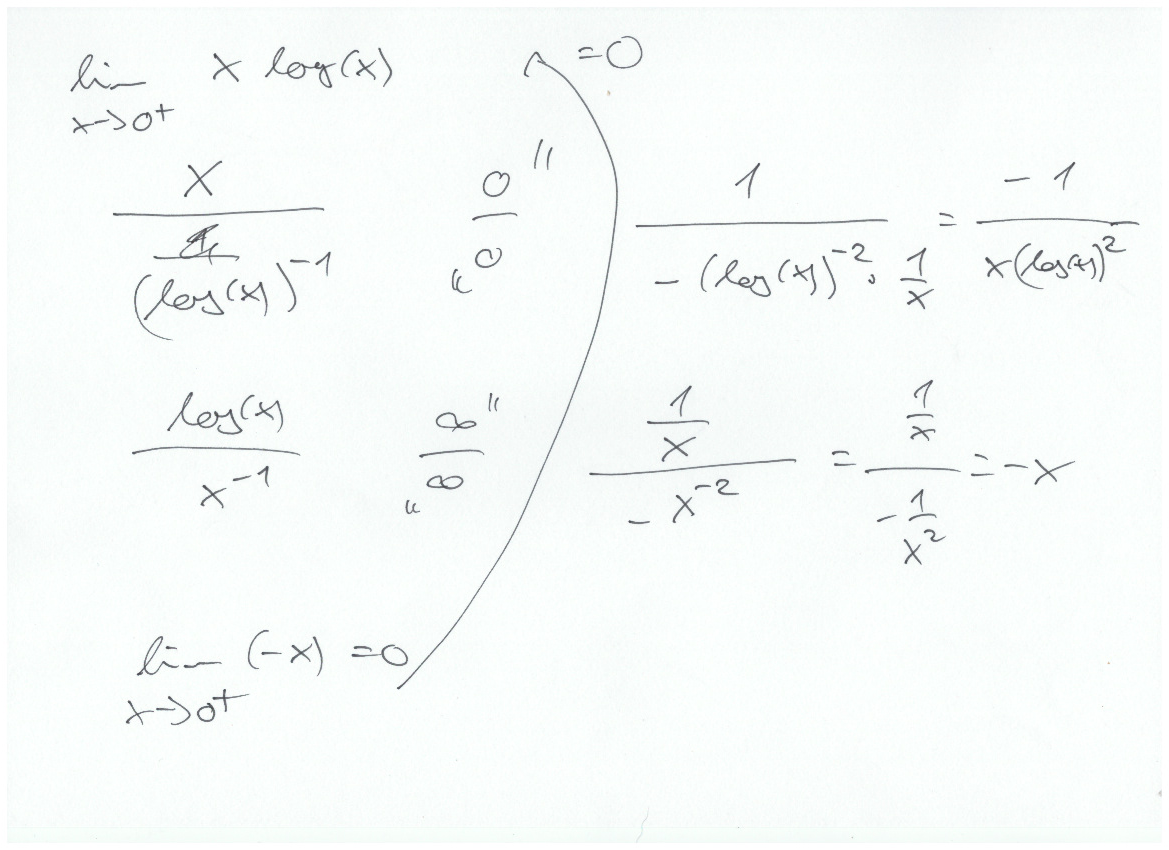 lim x log(x) = 0
x→0+
x / (log(x))^-1 „0/0" 1 / (-(log(x))^-2 · 1/x) = -1 / (x(log(x))^2)
log(x) / x^-1 „∞/∞" (1/x) / (-x^-2) = (1/x) / (-1/x^2) = -x
lim (-x) = 0
x→0+